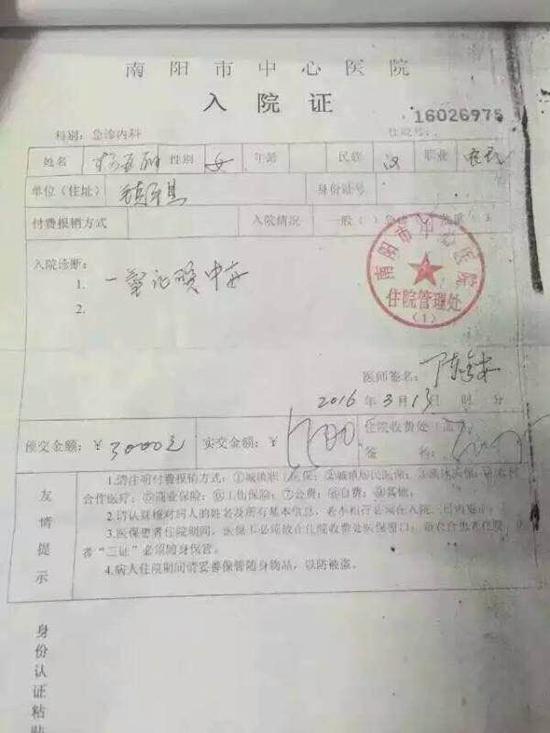 南阳市中心医院
入院证
16026975
科别：急诊内科 住院号：
姓名 性别 女 年龄 民族 汉 职业 农民
单位（住址） 镇平县 身份证号
付费报销方式 入院情况 一般（ ）急
入院诊断：
1. 一氧化碳中毒
2.
南阳市中心医院
住院管理处
（1）
医师签名：
2016 年 3 月 13 日 时 分
预交金额：￥ 3000元 实交金额：￥ 住院收费处
签
友情提示
1.请注明付费报销方式：①城镇职 医保；②城镇居民医保；
合作医疗；⑤商业保险；⑥工伤保险；⑦公费；⑧自费；⑨其他。
2.请认真核对病人的姓名及所有基本信息，
3.医保患者住院期间，医保卡必须放在住院收费处医保窗口；
者“三证”必须随身保管。
4.病人住院期间请妥善保管随身物品，以防被盗。
身份认证粘贴